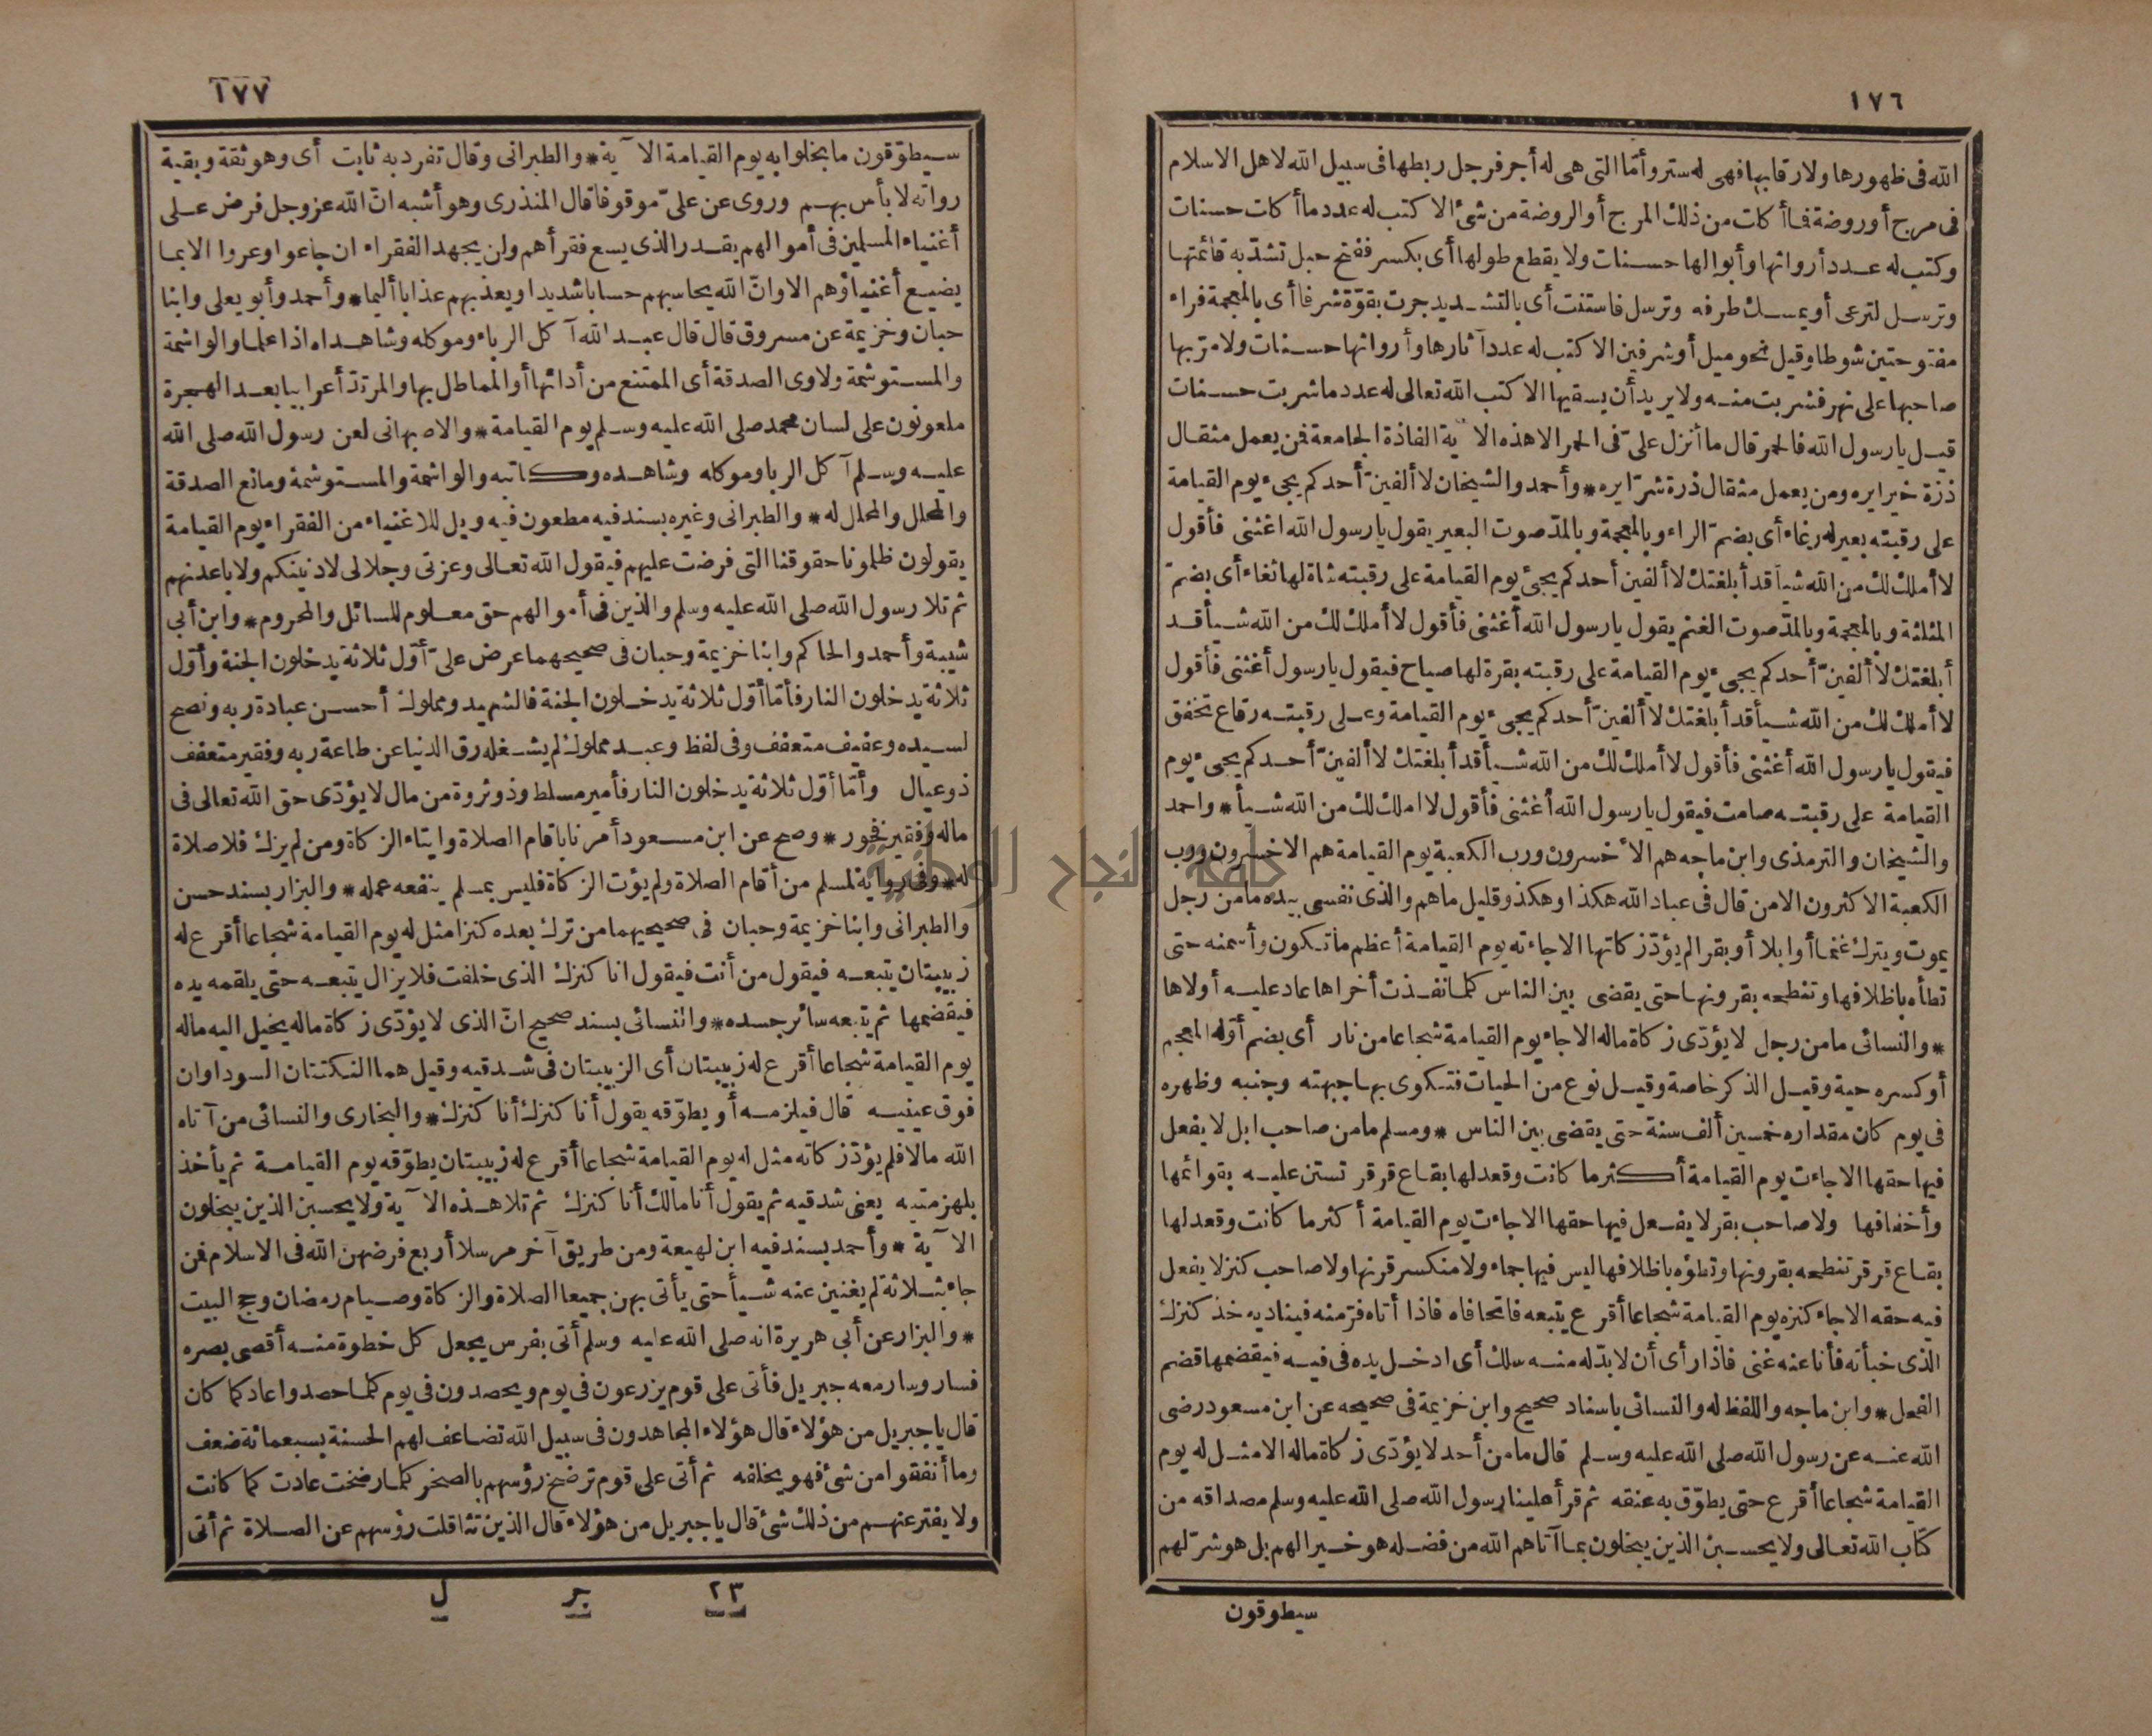 ١٧٦
الله فى ظهورها ولا رقابها فهى له ستر وأمّا التى هى له أجر فرجل ربطها فى سبيل الله لاهل الاسلام
فى مرج أو روضة فما أكات من ذلك المرج أو الروضة من شئ الا كتب له عدد ما أكات حسنات
وكتب له عدد أرواثها وأبوالها حسنات ولا يقطع طولها أى بكسر ففتح حبل تشدّ به قائمتها
وترسل لترعى أو يمسك طرفه وترسل فاستنت أى بالتشديد جرت بقوّة شرفا أى بالمعجمة فراء
مفتوحتين شوطا وقيل نحو ميل أو شرفين الا كتب له عدد آثارها وأرواثها حسنات ولا مرّ بها
صاحبها على نهر فشربت منه ولا يريد أن يسقيها الا كتب الله تعالى له عدد ما شربت حسنات
قيل يا رسول الله فالحمر قال ما أنزل علىّ فى الحمر الا هذه الآية الفاذة الجامعة فمن يعمل مثقال
ذرّة خيرا يره ومن يعمل مثقال ذرة شرّا يره * وأحمد والشيخان لا ألفينّ أحدكم يجىء يوم القيامة
على رقبته بعير له رغاء أى بضمّ الراء وبالمعجمة وبالمدّ صوت البعير يقول يا رسول الله اغثنى فأقول
لا أملك لك من الله شيأ قد أبلغتك لا ألفين أحدكم يجئ يوم القيامة على رقبته شاة لها ثغاء أى بضمّ
المثلثة وبالمعجمة وبالمدّ صوت الغنم يقول يا رسول الله أغثنى فأقول لا أملك لك من الله شيأ قد
أبلغتك لا ألفينّ أحدكم يجىء يوم القيامة على رقبته بقرة لها صياح فيقول يا رسول أغثنى فأقول
لا أملك لك من الله شيأ قد أبلغتك لا ألفينّ أحدكم يجىء يوم القيامة وعلى رقبته رقاع تخفق
فيقول يا رسول الله أغثنى فأقول لا أملك لك من الله شيأ قد أبلغتك لا ألفينّ أحدكم يجىء يوم
القيامة على رقبته صامت فيقول يا رسول الله أغثنى فأقول لا املك لك من الله شيأ * واحمد
والشيخان والترمذى وابن ماجه هم الأخسرون ورب الكعبة يوم القيامة هم الاخسرون ورب
الكعبة الاكثرون الا من قال فى عباد الله هكذا وهكذ وقليل ما هم والذى نفسى بيده ما من رجل
يموت ويترك غنما أو ابلا أو بقرا لم يؤدّ زكاتها الا جاءته يوم القيامة أعظم ما تكون وأسمنه حتى
تطأه باظلافها وتنطحه بقرونها حتى يقضى بين الناس كلما نفذت أخراها عاد عليه أولاها
* والنسائى ما من رجل لا يؤدّى زكاة ماله الا جاء يوم القيامة شجاعا من نار أى بضم أوّله المعجم
أو كسره حية وقيل الذكر خاصة وقيل نوع من الحيات فتكوى بها جبهته وجنبه وظهره
فى يوم كان مقداره خمسين ألف سنة حتى يقضى بين الناس * ومسلم ما من صاحب ابل لا يفعل
فيها حقها الا جاءت يوم القيامة أكثر ما كانت وقعد لها بقاع قرقر تستن عليه بقوائمها
وأخفافها ولا صاحب بقر لا يفعل فيها حقها الا جاءت يوم القيامة أكثر ما كانت وقعد لها
بقاع قرقر تنطحه بقرونها وتطؤه باظلافها ليس فيها جماء ولا منكسر قرنها ولا صاحب كنز لا يفعل
فيه حقه الا جاء كنزه يوم القيامة شجاعا أقرع يتبعه فاتحا فاه فاذا أتاه فرّ منه فيناديه خذ كنزك
الذى خبأته فأنا عنه غنى فاذا رأى أن لا بدّ له منه سلك أى ادخل يده فى فيه فيقضمها قضم
الفحل * وابن ماجه واللفظ له والنسائى باسناد صحيح وابن خزيمة فى صحيحه عن ابن مسعود رضى
الله عنه عن رسول الله صلى الله عليه وسلم قال ما من أحد لا يؤدّى زكاة ماله الا مثل له يوم
القيامة شجاعا أقرع حتى يطوّق به عنقه ثم قرأ علينا رسول الله صلى الله عليه وسلم مصداقه من
كتاب الله تعالى ولا يحسبن الذين يبخلون بما آتاهم الله من فضله هو خيرا لهم بل هو شرّ لهم
سيطوقون
١٧٧
سيطوّقون ما بخلوا به يوم القيامة الآية * والطبرانى وقال تفرد به ثابت أى وهو ثقة وبقية
رواته لا بأس بهم وروى عن علىّ موقوفا قال المنذرى وهو أشبه انّ الله عز وجل فرض على
أغنياء المسلمين فى أموالهم بقدر الذى يسع فقرأهم ولن يجهد الفقراء ان جاعوا وعروا الا بما
يضيع أغنياؤهم الا وانّ الله يحاسبهم حسابا شديدا ويعذبهم عذابا أليما * وأحمد وأبو يعلى وابنا
حبان وخزيمة عن مسروق قال قال عبد الله آكل الرباء وموكله وشاهداه اذا علما والواشمة
والمستوشمة ولاوى الصدقة أى الممتنع من أدائها أو المماطل بها والمرتدّ أعرابيا بعد الهجرة
ملعونون على لسان محمد صلى الله عليه وسلم يوم القيامة * والاصبهانى لعن رسول الله صلى الله
عليه وسلم آكل الربا وموكله وشاهده وكاتبه والواشمة والمستوشمة ومانع الصدقة
والمحلل والمحلل له * والطبرانى وغيره بسند فيه مطعون فيه ويل للاغنياء من الفقراء يوم القيامة
يقولون ظلمونا حقوقنا التى فرضت عليهم فيقول الله تعالى وعزتى وجلالى لادنينكم ولاباعدنهم
ثم تلا رسول الله صلى الله عليه وسلم والذين فى أموالهم حق معلوم للسائل والمحروم * وابن أبى
شيبة وأحمد والحاكم وابنا خزيمة وحبان فى صحيحهما عرض علىّ أوّل ثلاثة يدخلون الجنة وأوّل
ثلاثة يدخلون النار فأمّا أوّل ثلاثة يدخلون الجنة فالشهيد ومملوك أحسن عبادة ربه ونصح
لسيده وعفيف متعفف وفى لفظ وعبد مملوك لم يشغله رق الدنيا عن طاعة ربه وفقير متعفف
ذو عيال وأمّا أوّل ثلاثة يدخلون النار فأمير مسلط وذو ثروة من مال لا يؤدّى حق الله تعالى فى
ماله وفقير فخور * وصح عن ابن مسعود أمرنا باقام الصلاة وايتاء الزكاة ومن لم يزك فلا صلاة
له * وفى رواية لمسلم من أقام الصلاة ولم يؤت الزكاة فليس بمسلم ينفعه عمله * والبزار بسند حسن
والطبرانى وابنا خزيمة وحبان فى صحيحيهما من ترك بعده كنزا مثل له يوم القيامة شجاعا أقرع له
زبيبتان يتبعه فيقول من أنت فيقول انا كنزك الذى خلفت فلا يزال يتبعه حتى يلقمه يده
فيقضمها ثم يتبعه سائر جسده * والنسائى بسند صحيح انّ الذى لا يؤدّى زكاة ماله يخيل اليه ماله
يوم القيامة شجاعا أقرع له زبيبتان أى الزبيبتان فى شدقيه وقيل هما النكتتان السوداوان
فوق عينيه قال فيلزمه أو يطوّقه يقول أنا كنزك أنا كنزك * والبخارى والنسائى من آتاه
الله مالا فلم يؤدّ زكاته مثل له يوم القيامة شجاعا أقرع له زبيبتان يطوّقه يوم القيامة ثم يأخذ
بلهزمتيه يعنى شدقيه ثم يقول أنا مالك أنا كنزك ثم تلا هذه الآية ولا يحسبن الذين يبخلون
الآية * وأحمد بسند فيه ابن لهيعة ومن طريق آخر مرسلا أربع فرضهن الله فى الاسلام فمن
جاء بثلاثة لم يغنين عنه شيأ حتى يأتى بهن جميعا الصلاة والزكاة وصيام رمضان وحج البيت
* والبزار عن أبى هريرة انه صلى الله عليه وسلم أتى بفرس يجعل كل خطوة منه أقصى بصره
فسار وسار معه جبريل فأتى على قوم يزرعون فى يوم ويحصدون فى يوم كلما حصدوا عاد كما كان
قال يا جبريل من هؤلاء قال هؤلاء المجاهدون فى سبيل الله تضاعف لهم الحسنة بسبعمائة ضعف
وما أنفقوا من شئ فهو يخلفه ثم أتى على قوم ترضخ رؤسهم بالصخر كلما رضخت عادت كما كانت
ولا يفتر عنهم من ذلك شئ قال يا جبريل من هؤلاء قال الذين تثاقلت رؤسهم عن الصلاة ثم أتى
٢٣ جر ل
جامعة النجاح الوطنية